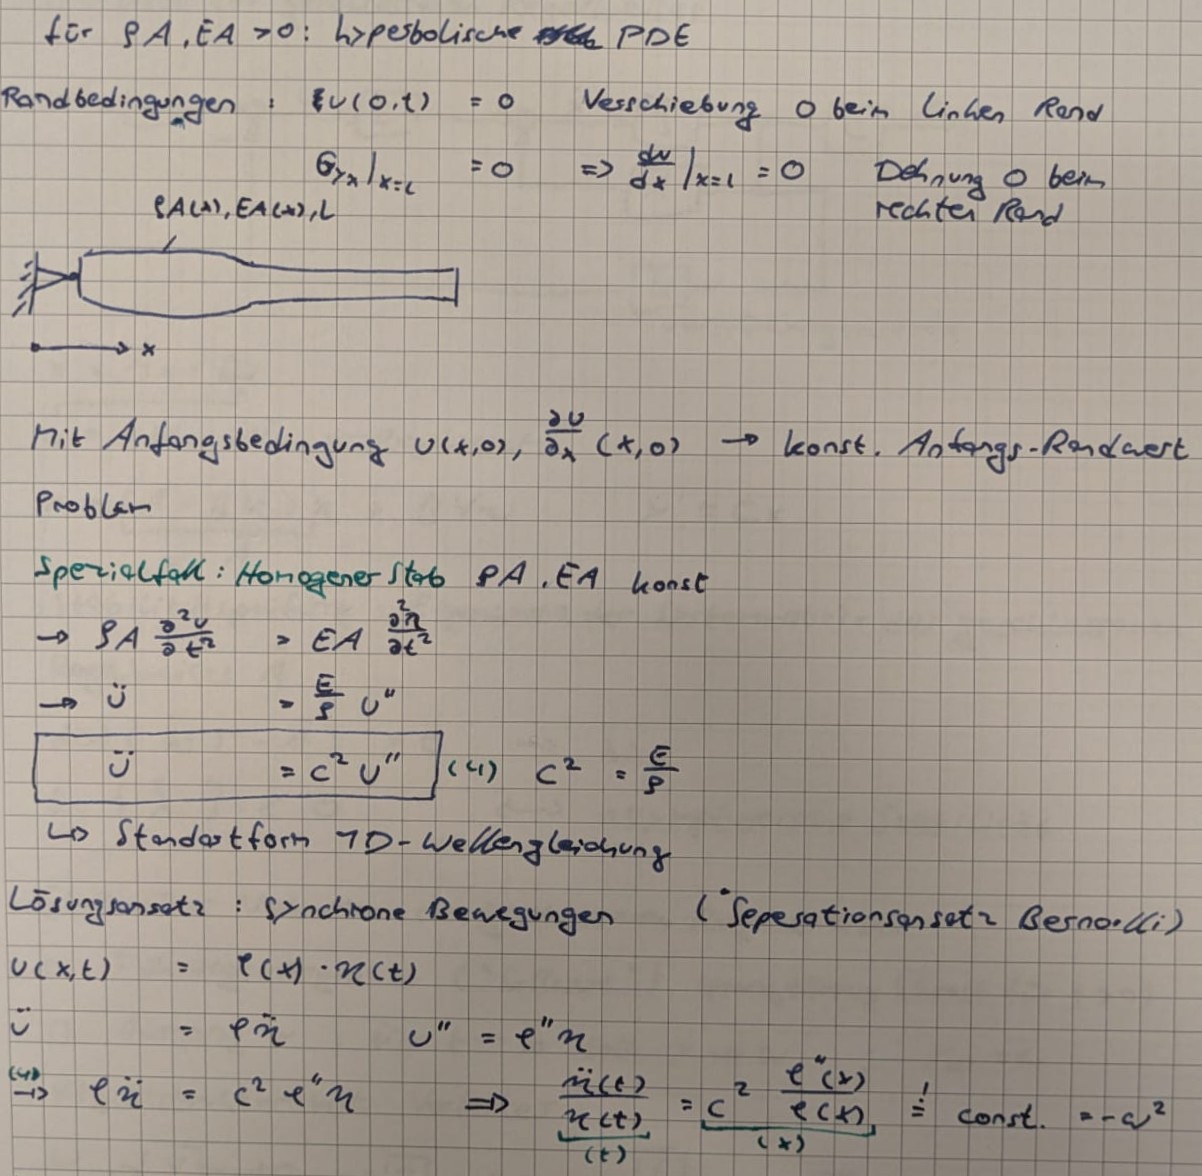 für ρA, EA > 0: hyperbolische PDE
Randbedingungen : u(0,t) = 0 Verschiebung 0 beim linken Rand
σ_xx|_x=L = 0 => du/dx |_x=L = 0 Dehnung 0 beim
rechten Rand
ρA(x), EA(x), L
x
Mit Anfangsbedingung u(x,0), ∂u/∂x (x,0) → konst. Anfangs-Randwert
Problem
Spezialfall: Homogener Stab ρA, EA konst
→ ρA ∂²u/∂t² = EA ∂²u/∂t²
→ ü = E/ρ u''
ü = c² u'' (4) c² = E/ρ
↳ Standartform 1D-Wellengleichung
Lösungsansatz : Synchrone Bewegungen (Seperationsansatz Bernoulli)
u(x,t) = φ(x) · η(t)
ü = φη̈ u'' = φ''η
(4) → φη̈ = c² φ''η => η̈(t)/η(t) = c² φ''(x)/φ(x) =! const. = -ω²
(t) (x)